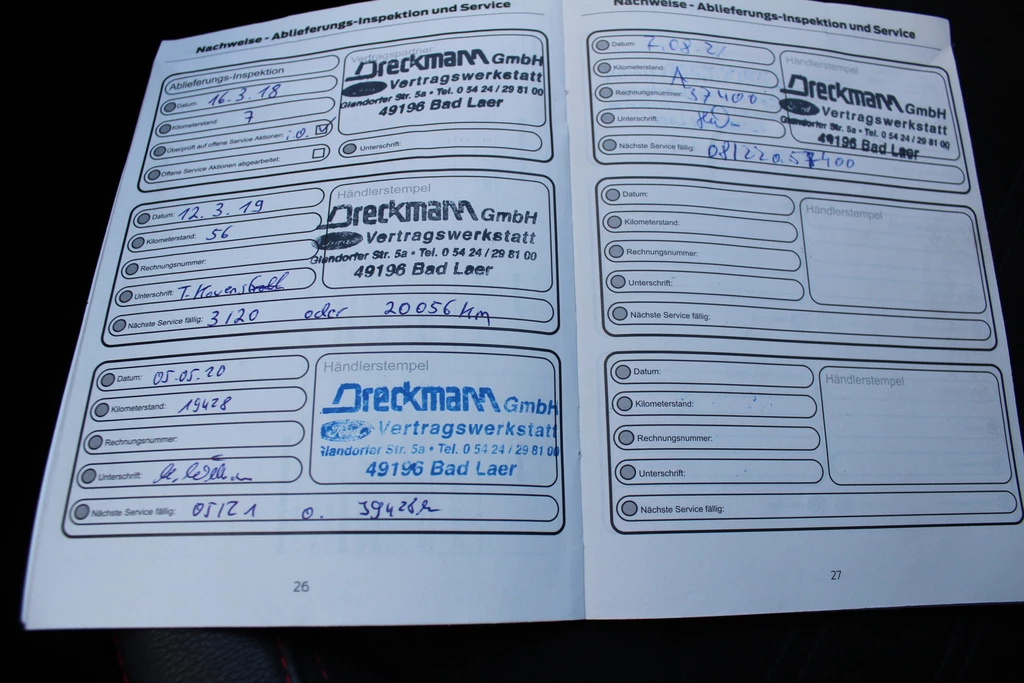 Nachweise - Ablieferungs-Inspektion und Service
Ablieferungs-Inspektion
Datum: 16.3.18
Kilometerstand: 7
Überprüft auf offene Service Aktionen: i.O.
Offene Service Aktionen abgearbeitet:
Vertragspartner
Dreckmann GmbH
Vertragswerkstatt
Glandorfer Str. 5a • Tel. 0 54 24 / 29 81 00
49196 Bad Laer
Unterschrift:
Datum: 12.3.19
Kilometerstand: 56
Rechnungsnummer:
Unterschrift:
Händlerstempel
Dreckmann GmbH
Vertragswerkstatt
Glandorfer Str. 5a • Tel. 0 54 24 / 29 81 00
49196 Bad Laer
Nächste Service fällig: 3/20 oder 20056 Km
Datum: 05.05.20
Kilometerstand: 19428
Rechnungsnummer:
Unterschrift:
Händlerstempel
Dreckmann GmbH
Vertragswerkstatt
Glandorfer Str. 5a • Tel. 0 54 24 / 29 81 00
49196 Bad Laer
Nächste Service fällig: 05/21 o. 39428
26
Nachweise - Ablieferungs-Inspektion und Service
Datum: 7.08.21
Kilometerstand: A
Rechnungsnummer: 37400
Unterschrift:
Händlerstempel
Dreckmann GmbH
Vertragswerkstatt
Glandorfer Str. 5a • Tel. 0 54 24 / 29 81 00
49196 Bad Laer
Nächste Service fällig: 08/22 o. 57400
Datum:
Kilometerstand:
Rechnungsnummer:
Unterschrift:
Händlerstempel
Nächste Service fällig:
Datum:
Kilometerstand:
Rechnungsnummer:
Unterschrift:
Händlerstempel
Nächste Service fällig:
27